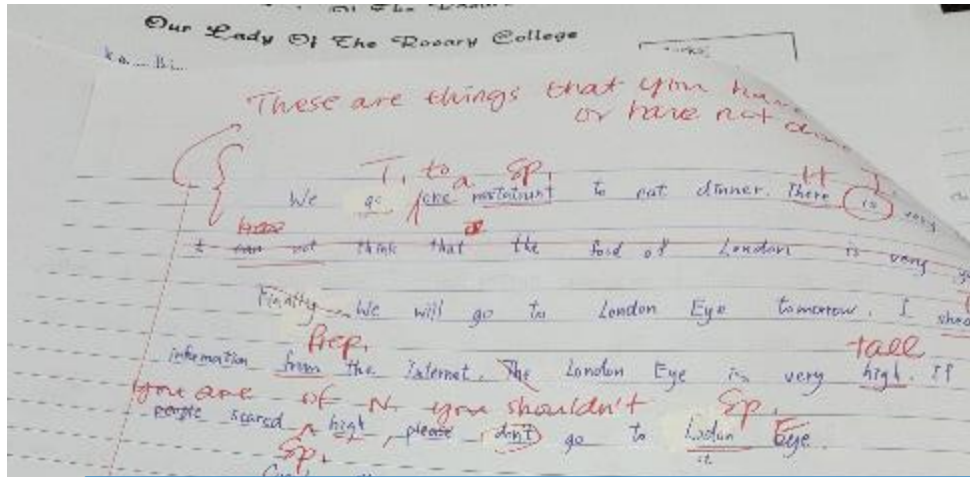 Of The
Our Lady Of The Rosary College
These are things that you have
or have not
T, to a Sp,
We go one to eat dinner. There is very
t can not think that the food of London is very
Finally We will go to London Eye tomorrow. I
Prep, tall
information from the Internet. The London Eye is very high. If
you are of N. you shouldn't Sp,
people scared high, please don't go to Lodon Eye.
Sp, it